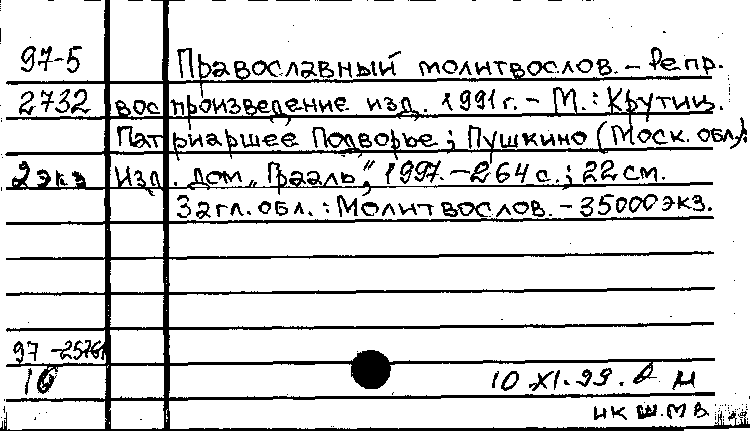 97-5 Православный молитвослов. - Репр.
2732 воспроизведение изд. 1991 г. - М.: Крутиц.
Патриаршее Подворье; Пушкино (Моск. обл.):
2 экз Изд. дом „Грааль”, 1997. - 264 с.; 22 см.
Загл. обл.: Молитвослов. - 35000 экз.
97-25761
10 10.XI.99.